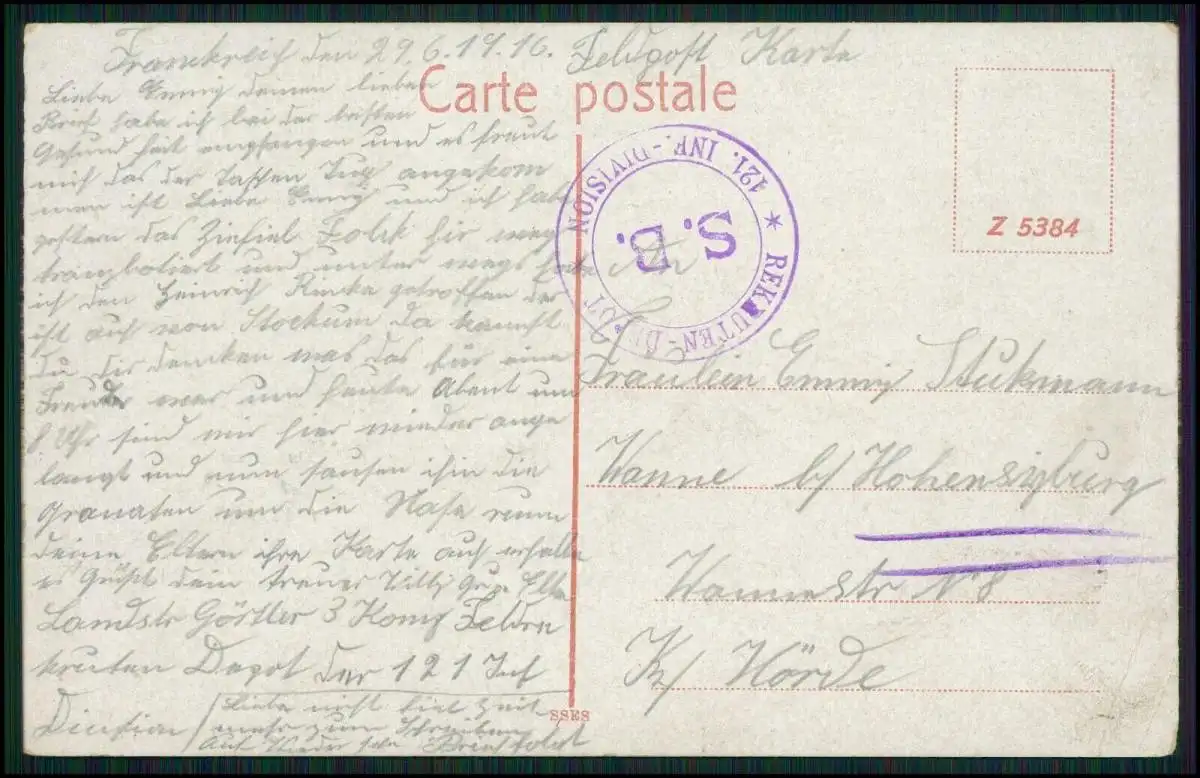 Frankreich den 29.6.1916. Feldpost Karte
Carte postale
Liebe Emmy deinen lieben
Brief habe ich bei der besten
Gesundheit empfangen und es freut
mich das der Taschen Tuch angekom
men ist Liebe Emmy und ich habe
gestern das Ziefiel Folk hir weg
tranßbotiert und unter wegs habe
ich den Heinrich getroffen der
ist auch von Stockum da kannst
Du dir denken was das für eine
Freude war und heute Abent um
8 Uhr sind wir hier wieder ange
langt und nun sausen ihm die
Granaten um die Nase wenn
deine Eltern ihre Karte auch erhalte
es Grüßt dein treuer Willy
Landstr Görtler 3 Komp Feldre
kruten Depot der 121 Inf
Division
Liebe nicht viel Zeit
mehr zum Schreiben
Auf Wieder sehn Brief folgt
REKRUTEN-DEPOT * 121. INF.-DIVISION
S. B.
Z 5384
An
Fräulein Emmy Stukmann
Wanne b/ Hohensyburg
Wannestr N 8
K/ Hörde
SSES